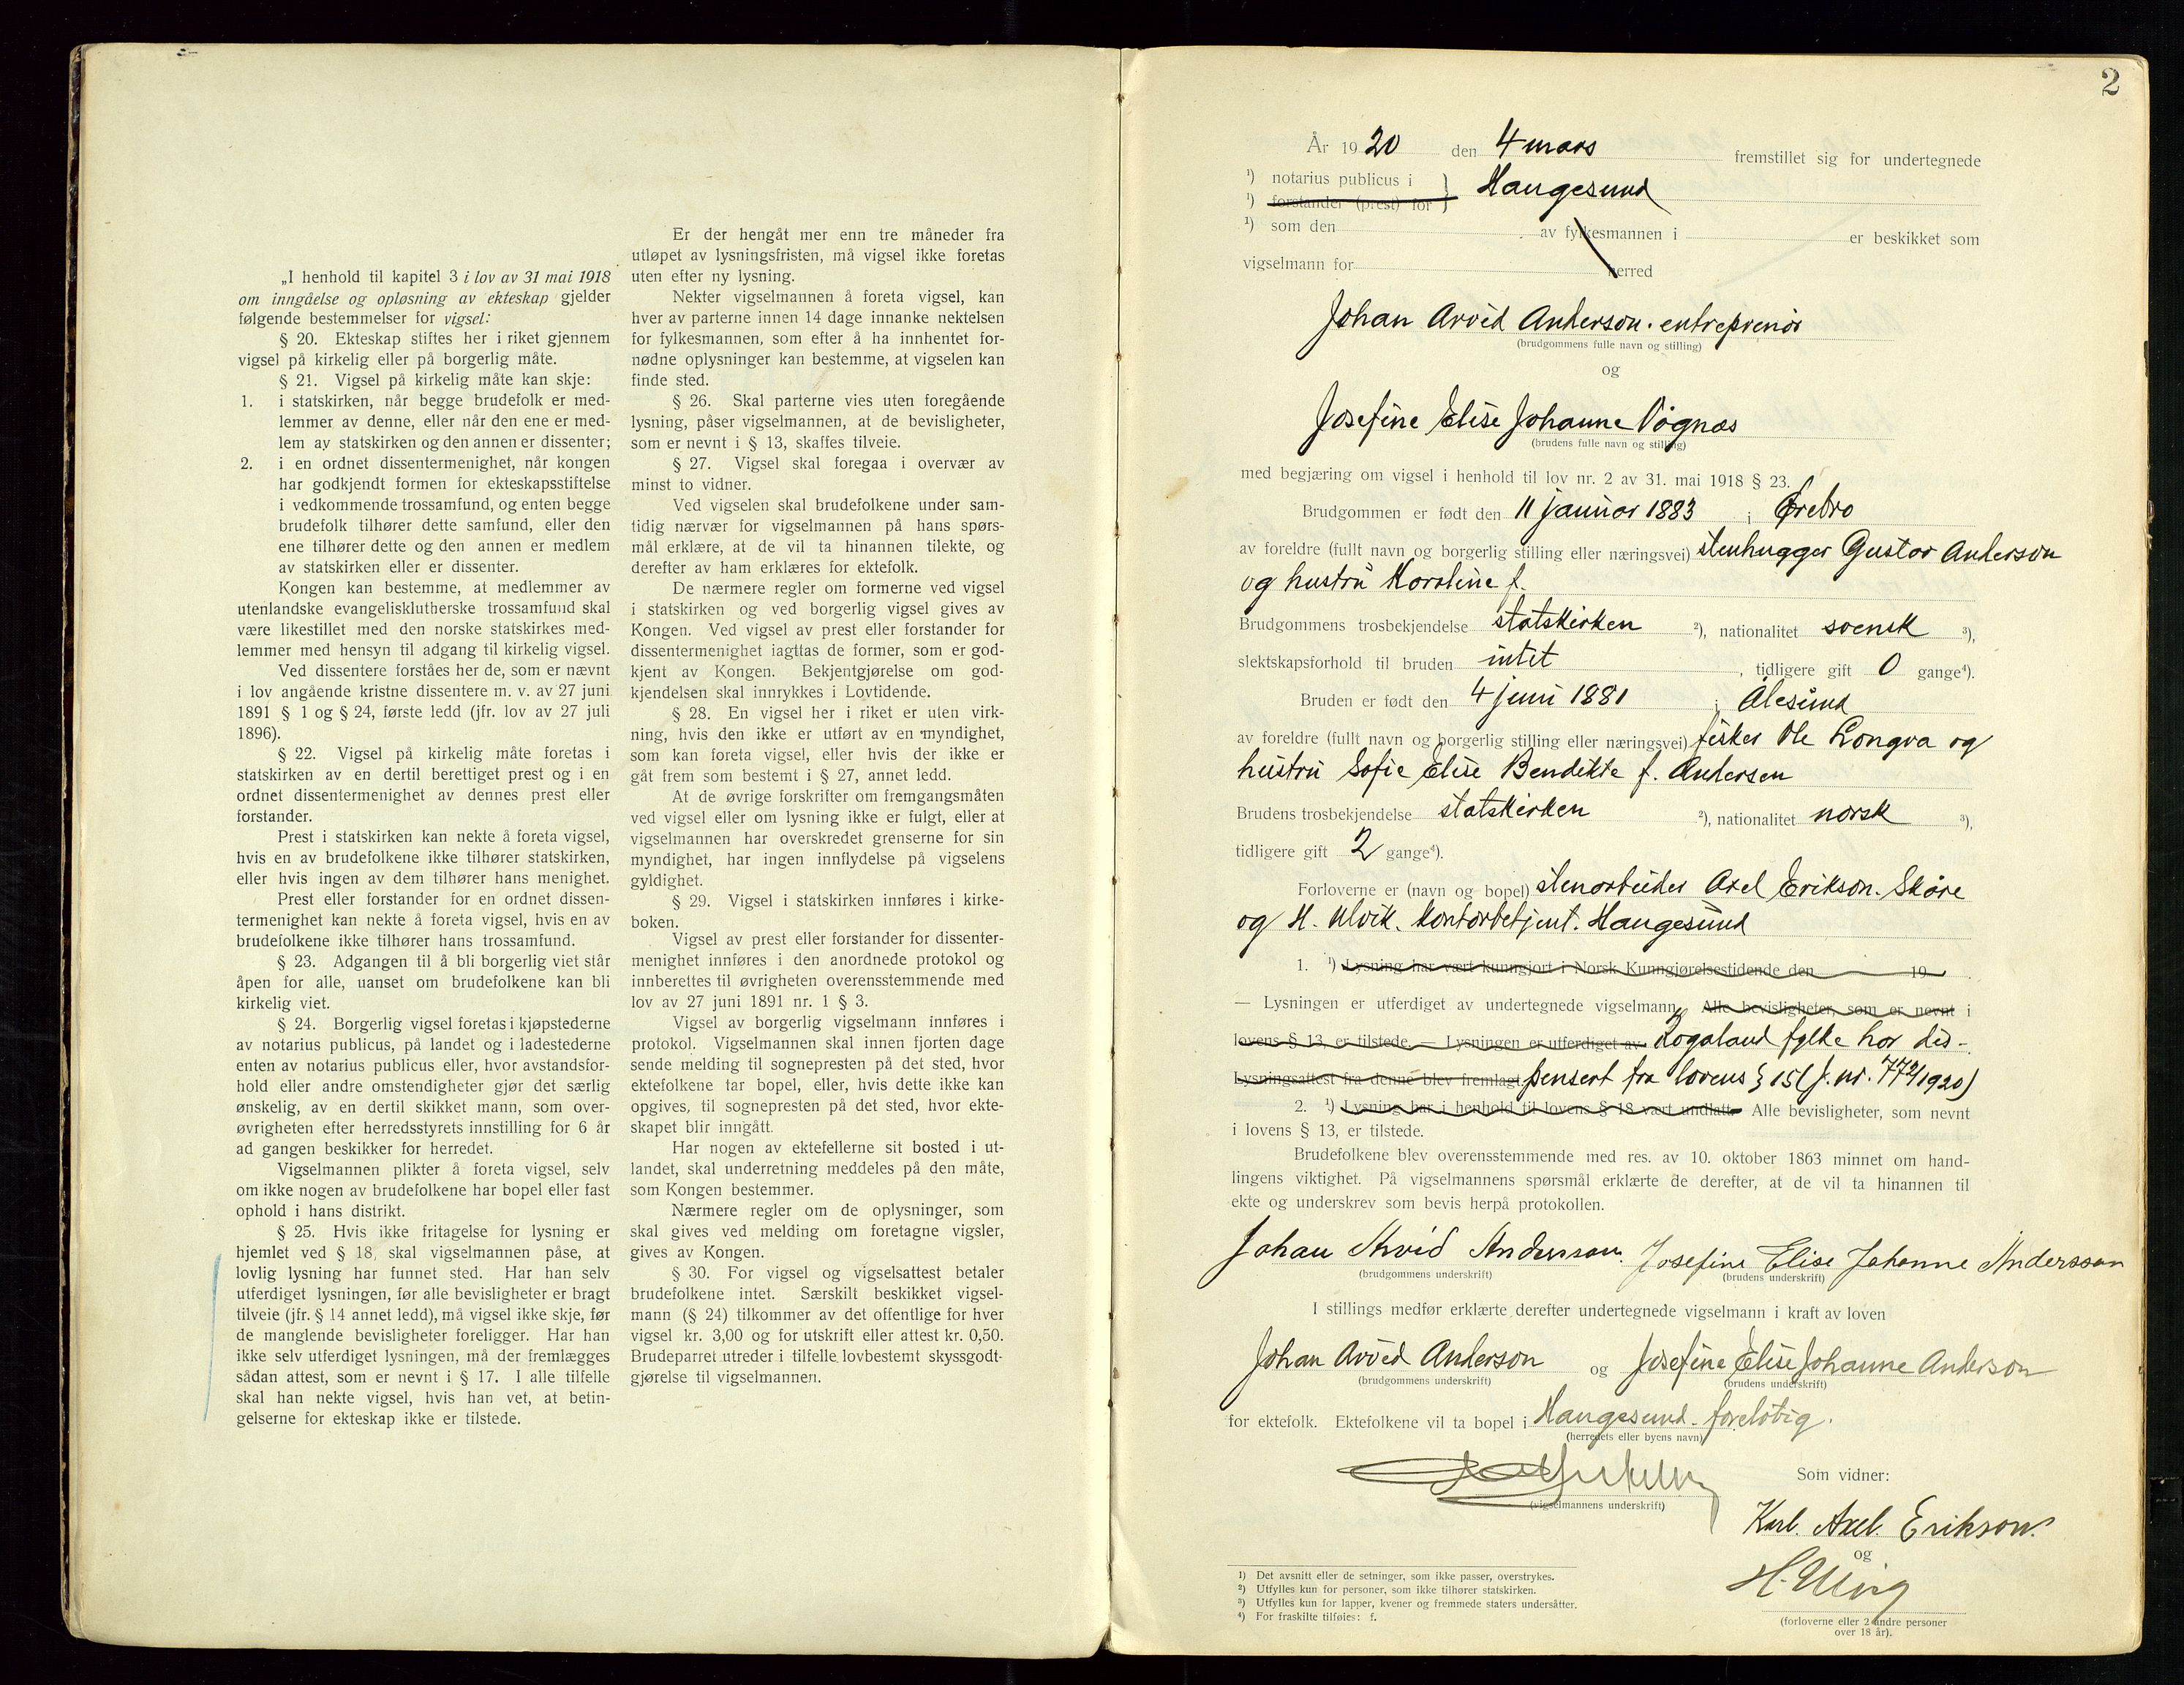 „I henhold til kapitel 3 i lov av 31 mai 1918
om inngåelse og opløsning av ekteskap gjelder
følgende bestemmelser for vigsel:
§ 20. Ekteskap stiftes her i riket gjennem
vigsel på kirkelig eller på borgerlig måte.
§ 21. Vigsel på kirkelig måte kan skje:
1. i statskirken, når begge brudefolk er med-
lemmer av denne, eller når den ene er med-
lem av statskirken og den annen er dissenter;
2. i en ordnet dissentermenighet, når kongen
har godkjendt formen for ekteskapsstiftelse
i vedkommende trossamfund, og enten begge
brudefolk tilhører dette samfund, eller den
ene tilhører dette og den annen er medlem
av statskirken eller er dissenter.
Kongen kan bestemme, at medlemmer av
utenlandske evangeliskluttherske trossamfund skal
være likestillet med den norske statskirkes med-
lemmer med hensyn til adgang til kirkelig vigsel.
Ved dissentere forståes her de, som er nævnt
i lov angående kristne dissentere m. v. av 27 juni
1891 § 1 og § 24, første ledd (jfr. lov av 27 juli
1896).
§ 22. Vigsel på kirkelig måte foretas i
statskirken av en dertil berettiget prest og i en
ordnet dissentermenighet av dennes prest eller
forstander.
Prest i statskirken kan nekte å foreta vigsel,
hvis en av brudefolkene ikke tilhører statskirken,
eller hvis ingen av dem tilhører hans menighet.
Prest eller forstander for en ordnet dissen-
termenighet kan nekte å foreta vigsel, hvis en av
brudefolkene ikke tilhører hans trossamfund.
§ 23. Adgangen til å bli borgerlig viet står
åpen for alle, uanset om brudefolkene kan bli
kirkelig viet.
§ 24. Borgerlig vigsel foretas i kjøpstederne
av notarius publicus, på landet og i ladestederne
enten av notarius publicus eller, hvor avstandsfor-
hold eller andre omstendigheter gjør det særlig
ønskelig, av en dertil skikket mann, som over-
øvrigheten efter herredsstyrets innstilling for 6 år
ad gangen beskikker for herredet.
Vigselmannen plikter å foreta vigsel, selv
om ikke nogen av brudefolkene har bopel eller fast
ophold i hans distrikt.
§ 25. Hvis ikke fritagelse for lysning er
hjemlet ved § 18, skal vigselmannen påse, at
lovlig lysning har funnet sted. Har han selv
utferdiget lysningen, før alle bevisligheter er bragt
tilveie (jfr. § 14 annet ledd), må vigsel ikke skje, før
de manglende bevisligheter foreligger. Har han
ikke selv utferdiget lysningen, må der fremlægges
sådan attest, som er nevnt i § 17. I alle tilfelle
skal han nekte vigsel, hvis han vet, at betin-
gelserne for ekteskap ikke er tilstede.
Er der hengåt mer enn tre måneder fra
utløpet av lysningsfristen, må vigsel ikke foretas
uten efter ny lysning.
Nekter vigselmannen å foreta vigsel, kan
hver av parterne innen 14 dage innanke nektelsen
for fylkesmannen, som efter å ha innhentet for-
nødne oplysninger kan bestemme, at vigselen kan
finde sted.
§ 26. Skal parterne vies uten foregående
lysning, påser vigselmannen, at de bevisligheter,
som er nevnt i § 13, skaffes tilveie.
§ 27. Vigsel skal foregaa i overvær av
minst to vidner.
Ved vigselen skal brudefolkene under sam-
tidig nærvær for vigselmannen på hans spørs-
mål erklære, at de vil ta hinannen tilekte, og
derefter av ham erklæres for ektefolk.
De nærmere regler om formerne ved vigsel
i statskirken og ved borgerlig vigsel gives av
Kongen. Ved vigsel av prest eller forstander for
dissentermenighet iagttas de former, som er god-
kjent av Kongen. Bekjentgjørelse om god-
kjendelsen skal innrykkes i Lovtidende.
§ 28. En vigsel her i riket er uten virk-
ning, hvis den ikke er utført av en myndighet,
som kan foreta vigsel, eller hvis der ikke er
gåt frem som bestemt i § 27, annet ledd.
At de øvrige forskrifter om fremgangsmåten
ved vigsel eller om lysning ikke er fulgt, eller at
vigselmannen har overskredet grenserne for sin
myndighet, har ingen innflydelse på vigselens
gyldighet.
§ 29. Vigsel i statskirken innføres i kirke-
boken.
Vigsel av prest eller forstander for dissenter-
menighet innføres i den anordnede protokol og
innberettes til øvrigheten overensstemmende med
lov av 27 juni 1891 nr. 1 § 3.
Vigsel av borgerlig vigselmann innføres i
protokol. Vigselmannen skal innen fjorten dage
sende melding til sognepresten på det sted, hvor
ektefolkene tar bopel, eller, hvis dette ikke kan
opgives, til sognepresten på det sted, hvor ekte-
skapet blir inngått.
Har nogen av ektefellerne sit bosted i ut-
landet, skal underretning meddeles på den måte,
som Kongen bestemmer.
Nærmere regler om de oplysninger, som
skal gives ved melding om foretagne vigsler,
gives av Kongen.
§ 30. For vigsel og vigselsattest betaler
brudefolkene intet. Særskilt beskikket vigsel-
mann (§ 24) tilkommer av det offentlige for hver
vigsel kr. 3,00 og for utskrift eller attest kr. 0,50.
Brudeparret utreder i tilfelle lovbestemt skyssgodt-
gjørelse til vigselmannen.
2
År 1920 den 4 mars fremstillet sig for undertegnede
1) notarius publicus i } Haugesund
1) forstander (prest) for
1) som den av fylkesmannen i er beskikket som
vigselmann for herred
Johan Arvid Anderson. entreprenör
(brudgommens fulle navn og stilling)
og
Josefine Elise Johanne Vognæs
(brudens fulle navn og stilling)
med begjæring om vigsel i henhold til lov nr. 2 av 31. mai 1918 § 23.
Brudgommen er født den 11 januar 1883 i Ørebro
av foreldre (fullt navn og borgerlig stilling eller næringsvei) stenhugger Gustav Anderson
og hustru Karoline f.
Brudgommens trosbekjendelse statskirken 2), nationalitet svensk 3),
slektskapsforhold til bruden intet, tidligere gift 0 gange4).
Bruden er født den 4 juni 1881 i Ålesund
av foreldre (fullt navn og borgerlig stilling eller næringsvei) fisker Ole Longva og
hustru Sofie Elise Bendikte f. Andersen
Brudens trosbekjendelse statskirken 2), nationalitet norsk 3),
tidligere gift 2 gange4).
Forloverne er (navn og bopel) stenarbeider Axel Erikson. Skåre
og H. Ulvik. kontorbetjent. Haugesund
1. 1) Lysning har vært kunngjort i Norsk Kunngjørelsestidende den 19
— Lysningen er utferdiget av undertegnede vigselmann. Alle bevisligheter, som er nevnt i
lovens § 13, er tilstede. — Lysningen er utferdiget av Rogaland fylke har dis-
Lysningsattest fra denne blev fremlagt pensert fra lovens § 15 (j. nr. 772/1920)
2. 1) Lysning har i henhold til lovens § 18 vært undlatt. Alle bevisligheter, som nevnt
i lovens § 13, er tilstede.
Brudefolkene blev overensstemmende med res. av 10. oktober 1863 minnet om hand-
lingens viktighet. På vigselmannens spørsmål erklærte de derefter, at de vil ta hinannen til
ekte og underskrev som bevis herpå protokollen.
Johan Arvid Andersson. Josefine Elise Johanne Andersson
(brudgommens underskrift) (brudens underskrift)
I stillings medfør erklærte derefter undertegnede vigselmann i kraft av loven
Johan Arvid Anderson og Josefine Elise Johanne Anderson
(brudgommens underskrift) (brudens underskrift)
for ektefolk. Ektefolkene vil ta bopel i Haugesund - foreløbig.
(herredets eller byens navn)
Som vidner:
(vigselmannens underskrift)
Karl. Axel. Erikson.
og
(forloverne eller 2 andre personer
over 18 år).
1) Det avsnitt eller de setninger, som ikke passer, overstrykes.
2) Utfylles kun for personer, som ikke tilhører statskirken.
3) Utfylles kun for lapper, kvener og fremmede staters undersåtter.
4) For fraskilte tilføies: f.